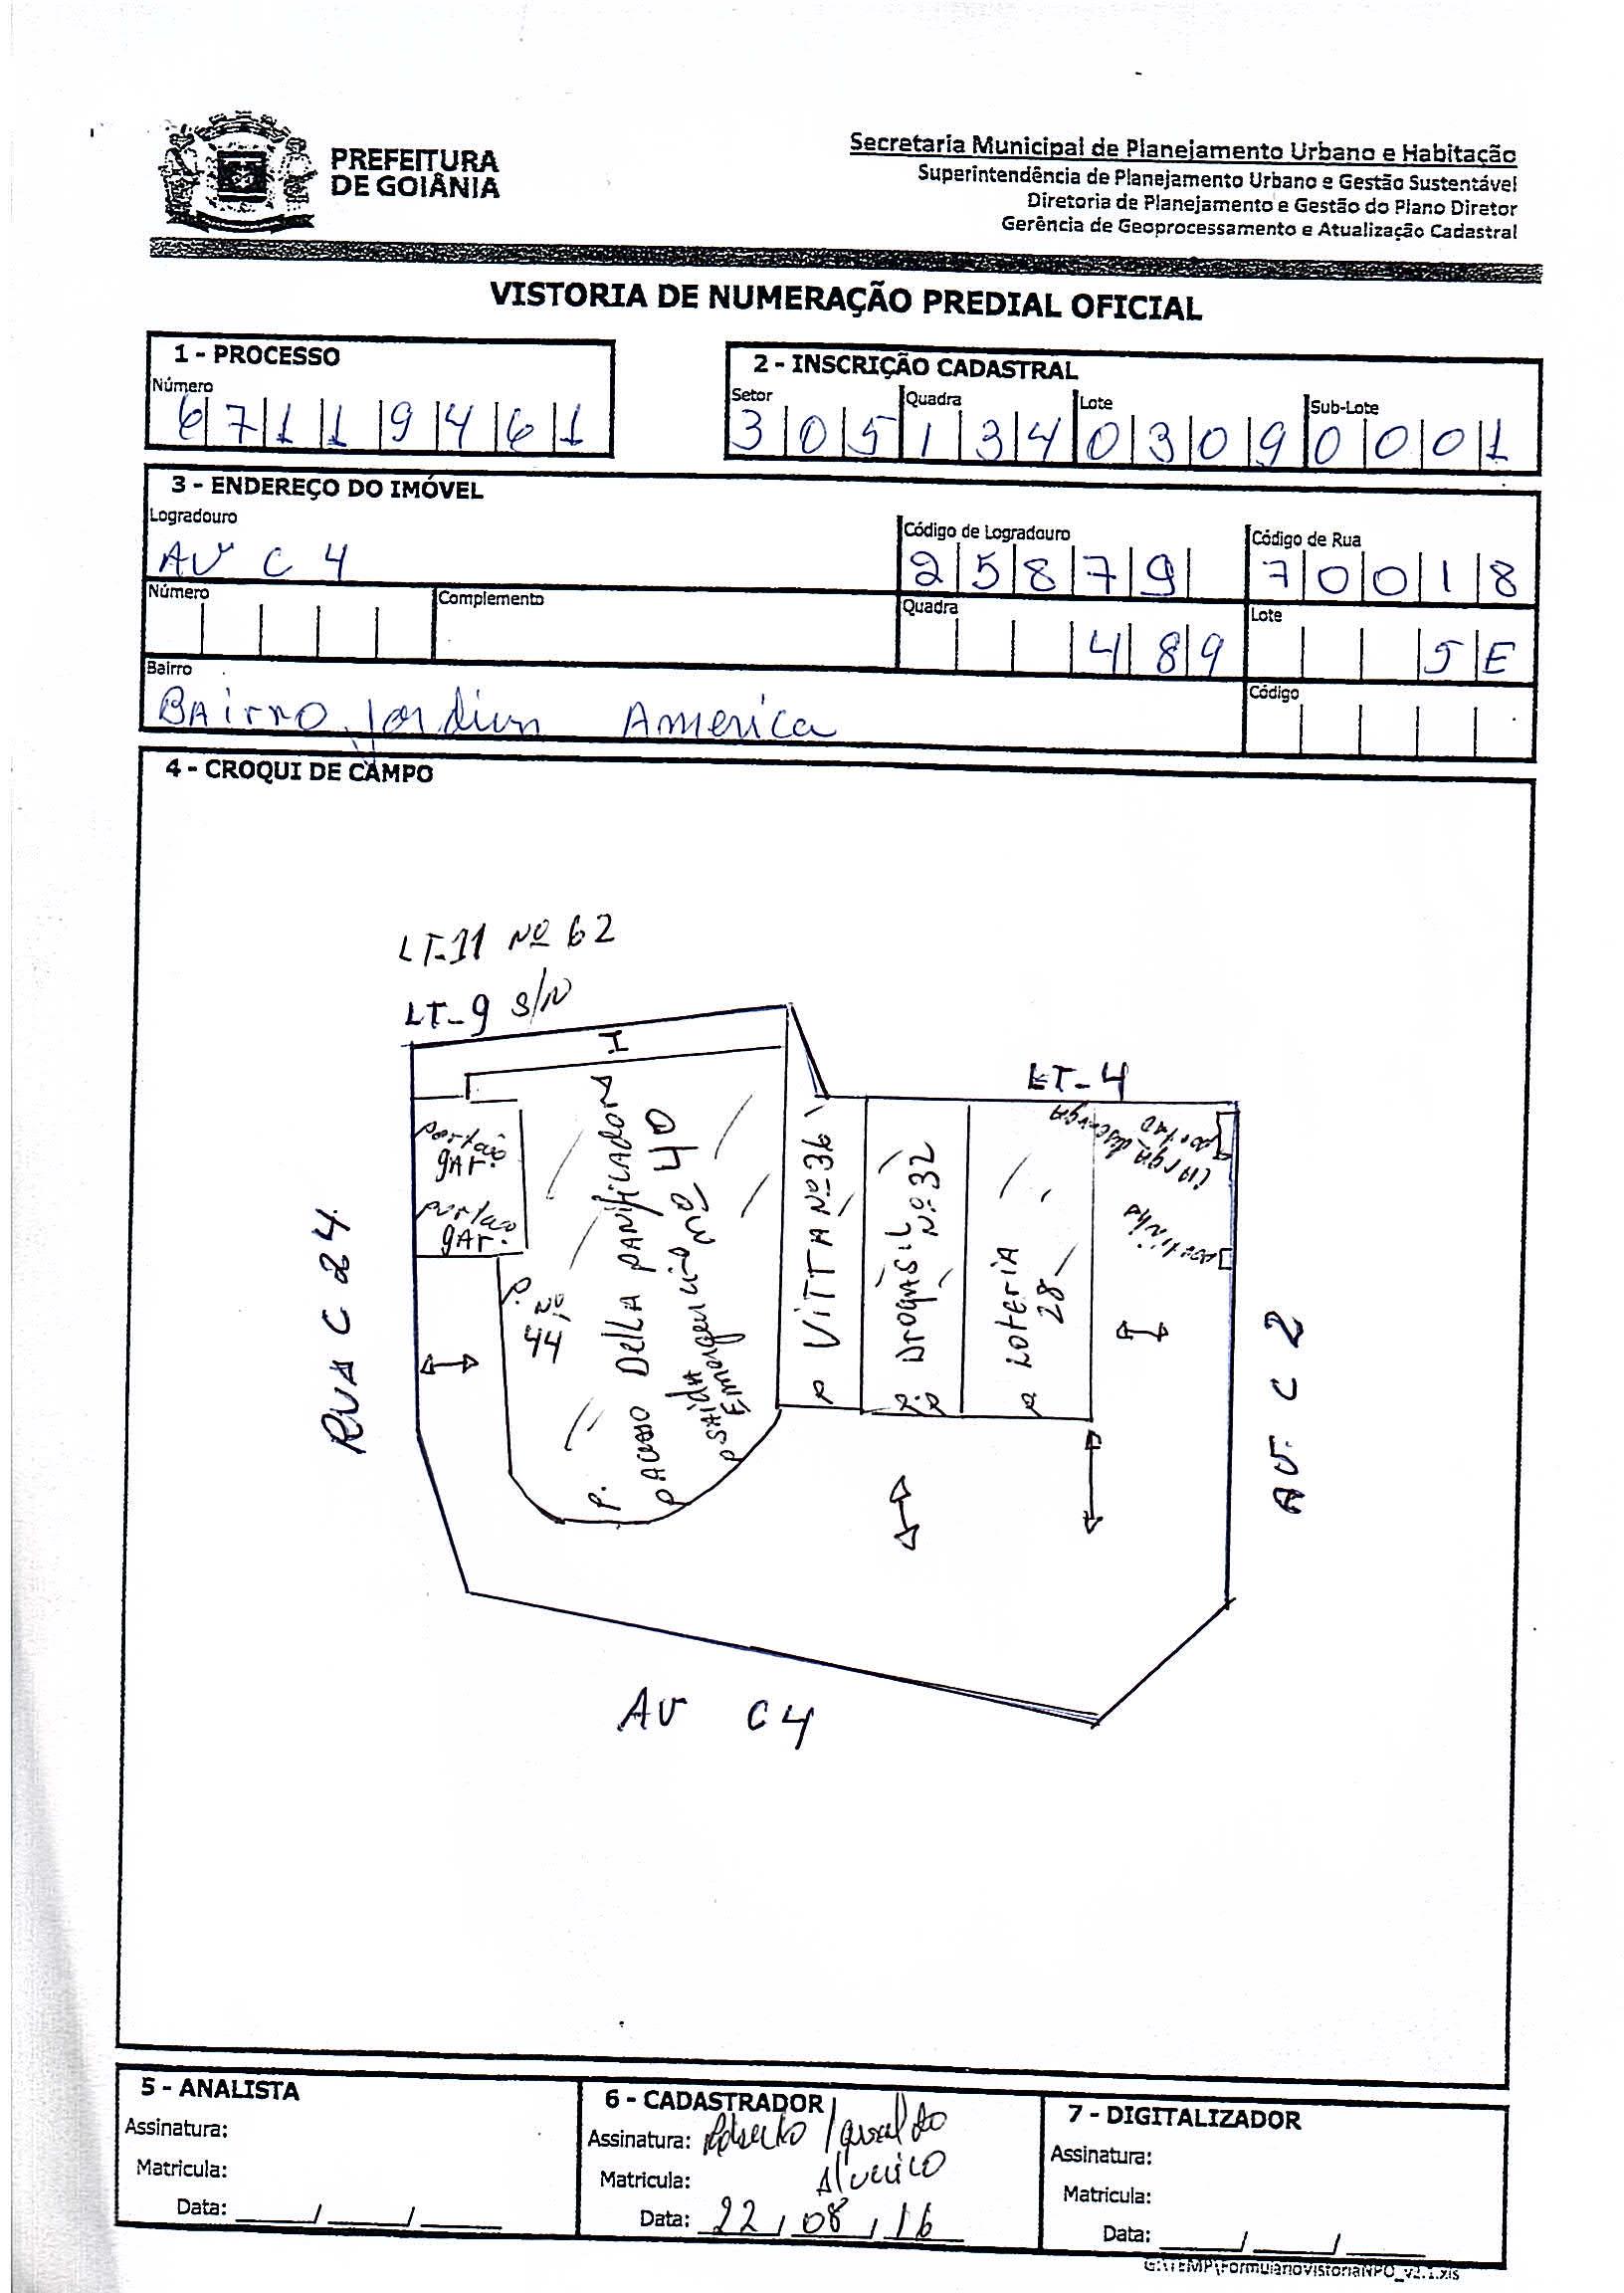 PREFEITURA
DE GOIÂNIA
Secretaria Municipal de Planejamento Urbano e Habitação
Superintendência de Planejamento Urbano e Gestão Sustentável
Diretoria de Planejamento e Gestão do Plano Diretor
Gerência de Geoprocessamento e Atualização Cadastral
VISTORIA DE NUMERAÇÃO PREDIAL OFICIAL
1 - PROCESSO
Número
67119461
2 - INSCRIÇÃO CADASTRAL
Setor Quadra Lote Sub-Lote
305 134 0309 0001
3 - ENDEREÇO DO IMÓVEL
Logradouro Código de Logradouro Código de Rua
AV C 4 25879 70018
Número Complemento Quadra Lote
489 5E
Bairro Código
BAirro Jardim America
4 - CROQUI DE CAMPO
LT-11 Nº 62
LT-9 S/N
I
LT-4
portão
gAr.
portao
gAr.
P. Nº
44
P. Acesso DELLA PANificADORA
Nº 40
P SAIDA
Emergencia
P VITTA Nº 36
P. P DROGASIL Nº 32
P LOTERIA
28
portão
CArgA descArgA
portinho
RUA C 24
AV. C 2
AV C4
5 - ANALISTA
Assinatura:
Matricula:
Data: ____/____/____
6 - CADASTRADOR
Assinatura: Roberto /
Matricula:
Data: 22/08/16
7 - DIGITALIZADOR
Assinatura:
Matricula:
Data: ____/____/____
G:\TEMP\FormularioVistoriaNPO_v2.1.xls